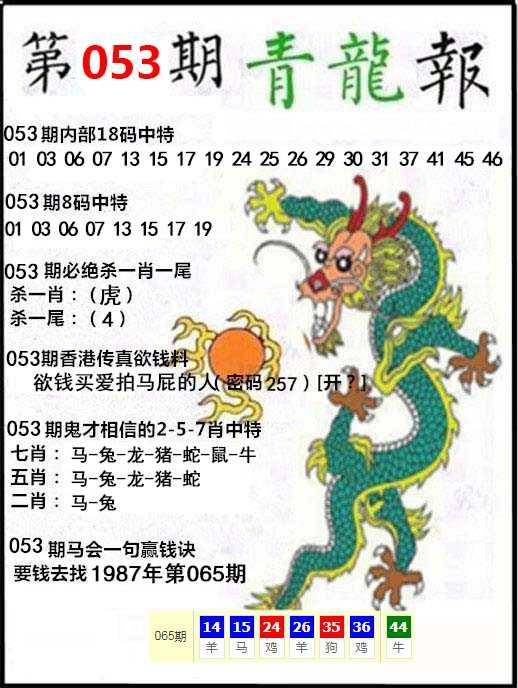 第053期青龍報
053期内部18码中特
01 03 06 07 13 15 17 19 24 25 26 29 30 31 37 41 45 46
053期8码中特
01 03 06 07 13 15 17 19
053期必绝杀一肖一尾
杀一肖：（虎）
杀一尾：（4）
053期香港传真欲钱料
欲钱买爱拍马屁的人(密码257）[开？]
053期鬼才相信的2-5-7肖中特
七肖：马-兔-龙-猪-蛇-鼠-牛
五肖：马-兔-龙-猪-蛇
二肖：马-兔
053期马会一句赢钱诀
要钱去找1987年第065期
065期 14 15 24 26 35 36 44
羊 马 鸡 羊 狗 鸡 牛